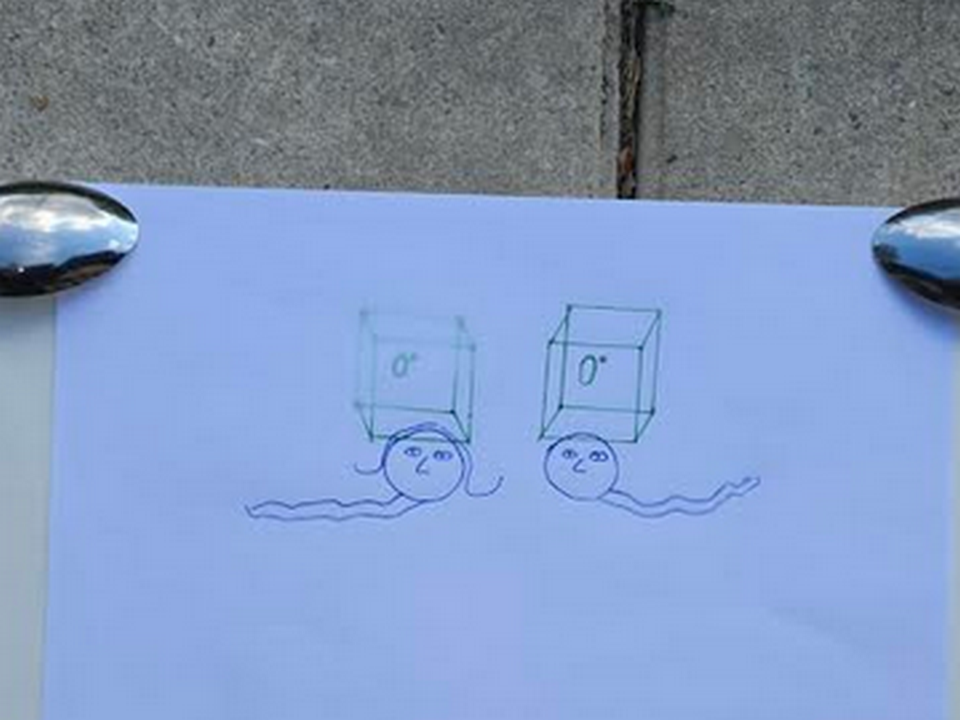 0°
0°